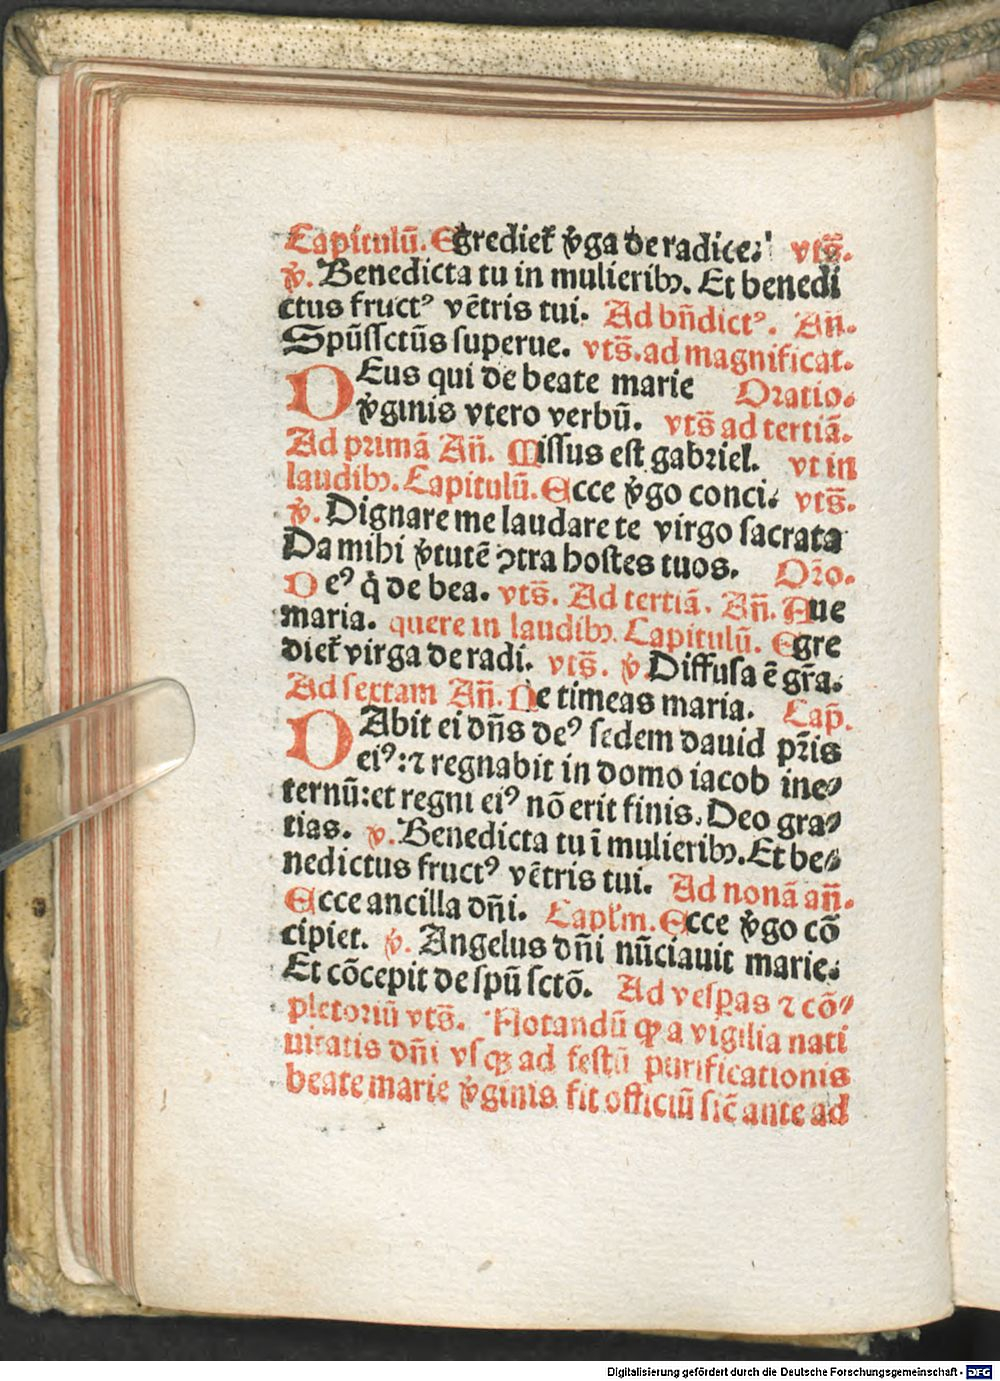 Capitulū. Egrediet̃ v̓ga de radice. vts̃.
v̓. Benedicta tu in mulierib⁹. Et benedi
ctus fruct⁹ vētris tui. Ad bn̄dict⁹. An̄.
Spūssctūs superue. vts̃. ad magnificat.
DEus qui de beate marie Oratio.
v̓ginis vtero verbū. vts̃ ad tertiā.
Ad primā An̄. Missus est gabriel. vt in
laudib⁹. Capitulū. Ecce v̓go conci. vts̃.
v̓. Dignare me laudare te virgo sacrata
Da mihi v̓tutē ꝯtra hostes tuos. Oro̅.
De⁹ q̇ de bea. vts̃. Ad tertiā. An̄. Aue
maria. quere in laudib⁹. Capitulū. Egre
diet̃ virga de radi. vts̃. v̓. Diffusa ē gr̄a.
Ad sextam An̄. Ne timeas maria. Cap̄.
DAbit ei dn̄s de⁹ sedem dauid pr̄is
ei⁹: ⁊ regnabit in domo iacob ine⸗
ternū: et regni ei⁹ nō erit finis. Deo gra⸗
tias. v̓. Benedicta tu ī mulierib⁹. Et be⸗
nedictus fruct⁹ vētris tui. Ad nonā an̄.
Ecce ancilla dn̄i. Capl̄m. Ecce v̓go cō
cipiet. v̓. Angelus dn̄i nūciauit marie.
Et cōcepit de spū sctō. Ad vesꝑas ⁊ cō⸗
pletoriū vts̃. Notandū ꝙ a vigilia nati
uitatis dn̄i vsqꝫ ad festū purificationis
beate marie v̓ginis fit officiū sic̄ ante ad
Digitalisierung gefördert durch die Deutsche Forschungsgemeinschaft - DFG